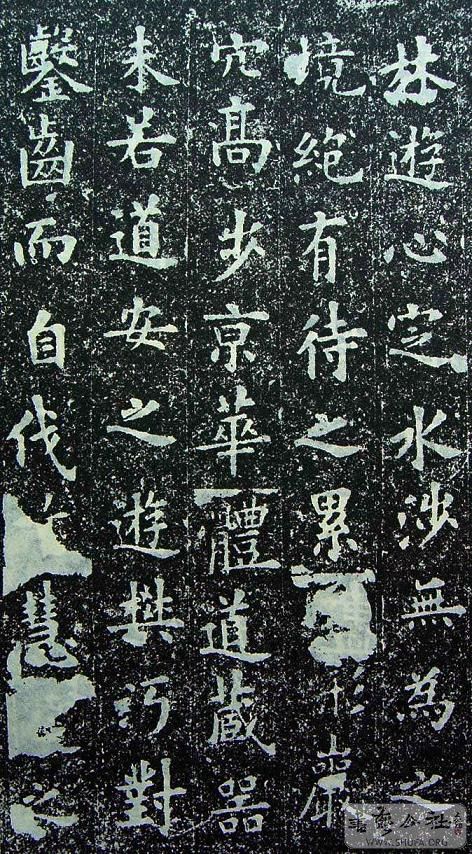 林遊心定水涉無為之
境絕有待之累形巖
穴高步京華體道藏器
未若道安之遊樊沔對
鑿齒而自伐慧之
書藝公社
WWW.SHUFA.ORG